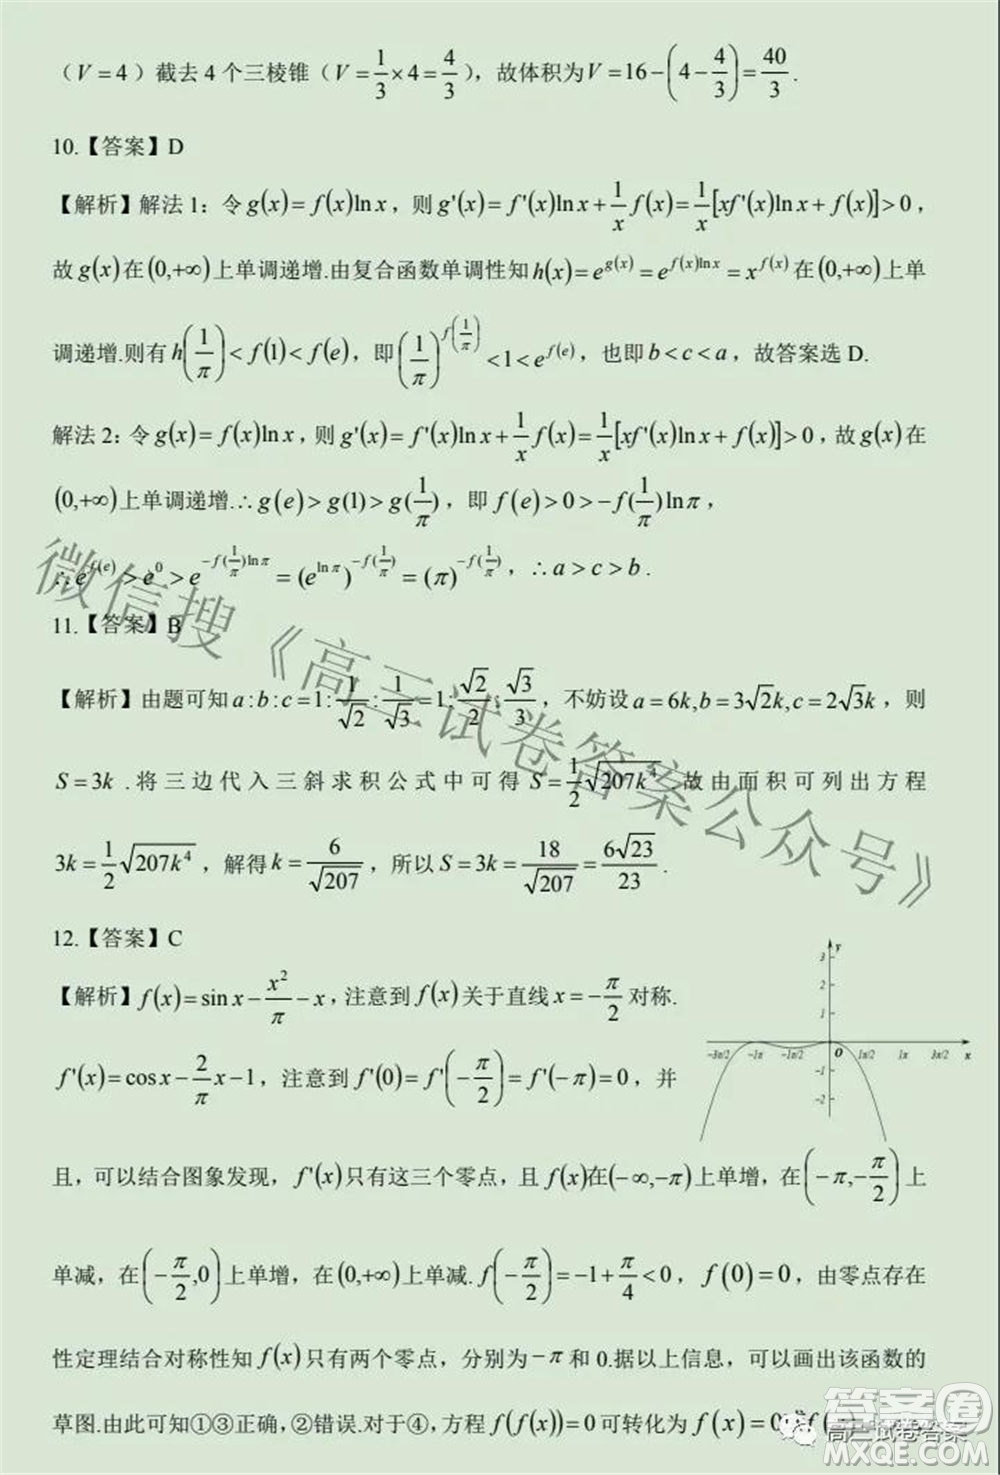 （V=4）截去4个三棱锥（V=\frac{1}{3}×4=\frac{4}{3}），故体积为V=16-\left(4-\frac{4}{3}\right)=\frac{40}{3}.
10.【答案】D
【解析】解法1：令g(x)=f(x)lnx，则g'(x)=f'(x)lnx+\frac{1}{x}f(x)=\frac{1}{x}[xf'(x)lnx+f(x)]>0，
故g(x)在(0,+∞)上单调递增.由复合函数单调性知h(x)=e^{g(x)}=e^{f(x)lnx}=x^{f(x)}在(0,+∞)上单
调递增.则有h\left(\frac{1}{π}\right)<f(1)<f(e)，即\left(\frac{1}{π}\right)^{f\left(\frac{1}{π}\right)}<1<e^{f(e)}，也即b<c<a，故答案选D.
解法2：令g(x)=f(x)lnx，则g'(x)=f'(x)lnx+\frac{1}{x}f(x)=\frac{1}{x}[xf'(x)lnx+f(x)]>0，故g(x)在
(0,+∞)上单调递增.∴g(e)>g(1)>g(\frac{1}{π})，即f(e)>0>-f(\frac{1}{π})lnπ，
∴e^{f(e)}>e^{0}>e^{-f(\frac{1}{π})lnπ}=(e^{lnπ})^{-f(\frac{1}{π})}=(π)^{-f(\frac{1}{π})}，∴a>c>b.
11.【答案】B
【解析】由题可知a:b:c=1:\frac{1}{\sqrt{2}}:\frac{1}{\sqrt{3}}=1:\frac{\sqrt{2}}{2}:\frac{\sqrt{3}}{3}，不妨设a=6k,b=3\sqrt{2}k,c=2\sqrt{3}k，则
S=3k.将三边代入三斜求积公式中可得S=\frac{1}{2}\sqrt{207k^4}故由面积可列出方程
3k=\frac{1}{2}\sqrt{207k^4}，解得k=\frac{6}{\sqrt{207}}，所以S=3k=\frac{18}{\sqrt{207}}=\frac{6\sqrt{23}}{23}.
12.【答案】C
【解析】f(x)=sinx-\frac{x^2}{π}-x，注意到f(x)关于直线x=-\frac{π}{2}对称.
f'(x)=cosx-\frac{2}{π}x-1，注意到f'(0)=f'\left(-\frac{π}{2}\right)=f'(-π)=0，并
y
3
2
1
-3π/2 -1π -1π/2 O 1π/2 1π 3π/2 x
-1
-2
且，可以结合图象发现，f'(x)只有这三个零点，且f(x)在(-∞,-π)上单增，在\left(-π,-\frac{π}{2}\right)上
单减，在\left(-\frac{π}{2},0\right)上单增，在(0,+∞)上单减.f\left(-\frac{π}{2}\right)=-1+\frac{π}{4}<0，f(0)=0，由零点存在
性定理结合对称性知f(x)只有两个零点，分别为-π和0.据以上信息，可以画出该函数的
草图.由此可知①③正确，②错误.对于④，方程f(f(x))=0可转化为f(x)=0
微信搜《高三试卷答案公众号》
高三试卷答案
答案圈
MXQE.COM